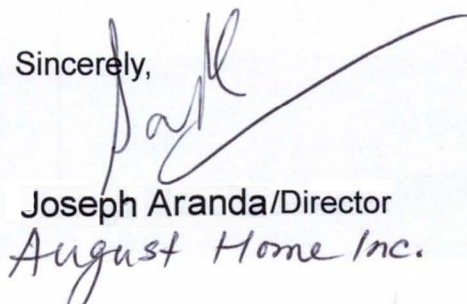 Sincerely,
Joseph Aranda/Director
August Home Inc.